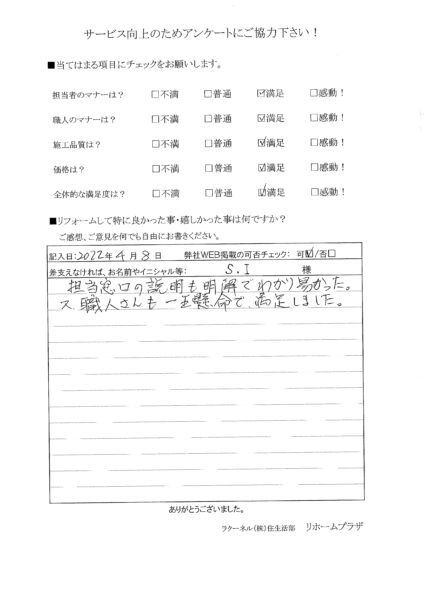 サービス向上のためアンケートにご協力下さい！
■当てはまる項目にチェックをお願いします。
担当者のマナーは？ □不満 □普通 ☑満足 □感動！
職人のマナーは？ □不満 □普通 ☑満足 □感動！
施工品質は？ □不満 □普通 ☑満足 □感動！
価格は？ □不満 □普通 ☑満足 □感動！
全体的な満足度は？ □不満 □普通 ☑満足 □感動！
■リフォームして特に良かった事・嬉しかった事は何ですか？
ご感想、ご意見を何でも自由にお書きください。
記入日：2022年 4月 8日 弊社WEB掲載の可否チェック： 可☑/否□
差支えなければ、お名前やイニシャル等： S.I 様
担当窓口の説明も明解でわかり易かった。
又、職人さんも一生懸命で、満足しました。
ありがとうございました。
ラクーネル（株）住生活部 リホームプラザ